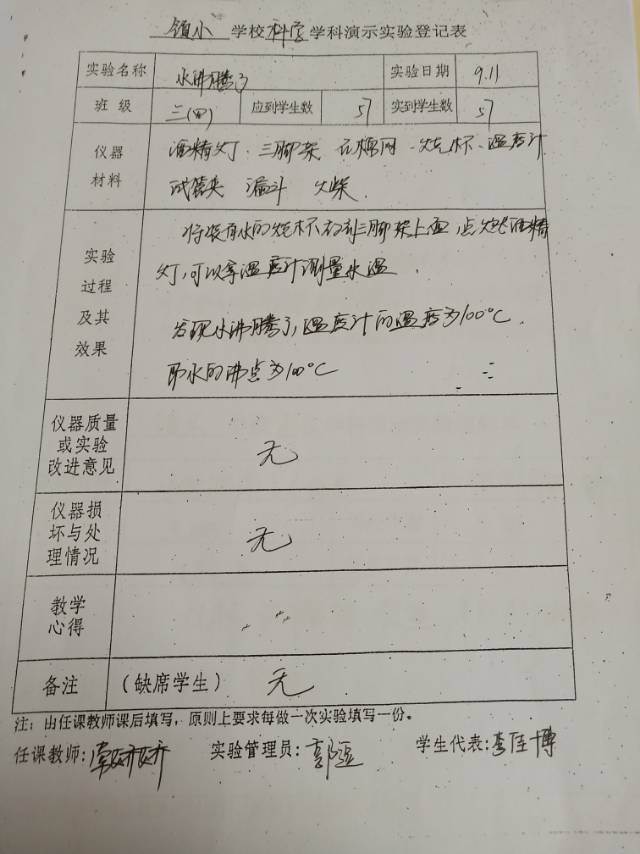 镇小 学校 科学 学科演示实验登记表
实验名称 水沸腾了 实验日期 9.11
班 级 三(四) 应到学生数 57 实到学生数 57
仪器 酒精灯、三脚架 石棉网、烧杯、温度计
材料 试管夹 漏斗 火柴.
实验
过程
及其
效果
将装有水的烧杯放到三脚架上面,点燃酒精
灯,可以拿温度计测量水温.
发现水沸腾了,温度计的温度为100℃.
即水的沸点为100℃
仪器质量
或实验
改进意见
无
仪器损
坏与处
理情况
无
教学
心得
备注 (缺席学生) 无
注:由任课教师课后填写,原则上要求每做一次实验填写一份。
任课教师:常娇娇 实验管理员:郭 学生代表:李佳博